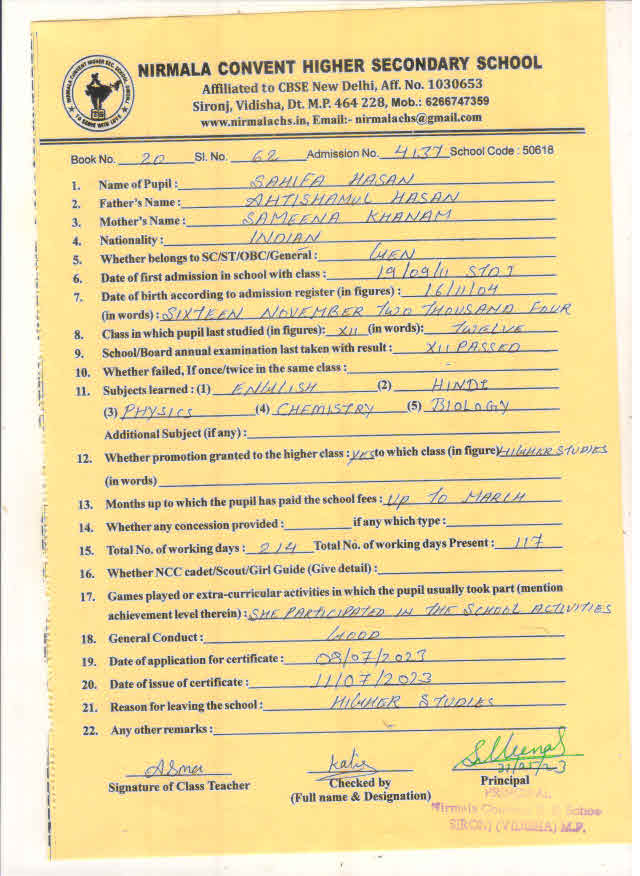 NIRMALA CONVENT HIGHER SECONDARY SCHOOL
Affiliated to CBSE New Delhi, Aff. No. 1030653
Sironj, Vidisha, Dt. M.P. 464 228, Mob.: 6266747359
www.nirmalachs.in, Email:- nirmalachs@gmail.com
Book No. 20 Sl. No. 62 Admission No. 4137 School Code : 50618
1. Name of Pupil : SAHIFA HASAN
2. Father's Name : AHTISHAMUL HASAN
3. Mother's Name : SAMEENA KHANAM
4. Nationality : INDIAN
5. Whether belongs to SC/ST/OBC/General : GEN
6. Date of first admission in school with class : 19/09/11 STD I
7. Date of birth according to admission register (in figures) : 16/11/04
(in words) : SIXTEEN NOVEMBER TWO THOUSAND FOUR
8. Class in which pupil last studied (in figures): XII (in words): TWELVE
9. School/Board annual examination last taken with result : XII PASSED
10. Whether failed, If once/twice in the same class : -
11. Subjects learned : (1) ENGLISH (2) HINDI
(3) PHYSICS (4) CHEMISTRY (5) BIOLOGY
Additional Subject (if any) :
12. Whether promotion granted to the higher class : YES to which class (in figure) HIGHER STUDIES
(in words)
13. Months up to which the pupil has paid the school fees : UP TO MARCH
14. Whether any concession provided : if any which type :
15. Total No. of working days : 214 Total No. of working days Present : 117
16. Whether NCC cadet/Scout/Girl Guide (Give detail) :
17. Games played or extra-curricular activities in which the pupil usually took part (mention
achievement level therein) : SHE PARTICIPATED IN THE SCHOOL ACTIVITIES
18. General Conduct : GOOD
19. Date of application for certificate : 08/07/2023
20. Date of issue of certificate : 11/07/2023
21. Reason for leaving the school : HIGHER STUDIES
22. Any other remarks :
Signature of Class Teacher
Checked by
(Full name & Designation)
Principal
PRINCIPAL
Nirmala
SIRONJ (VIDISHA) M.P.